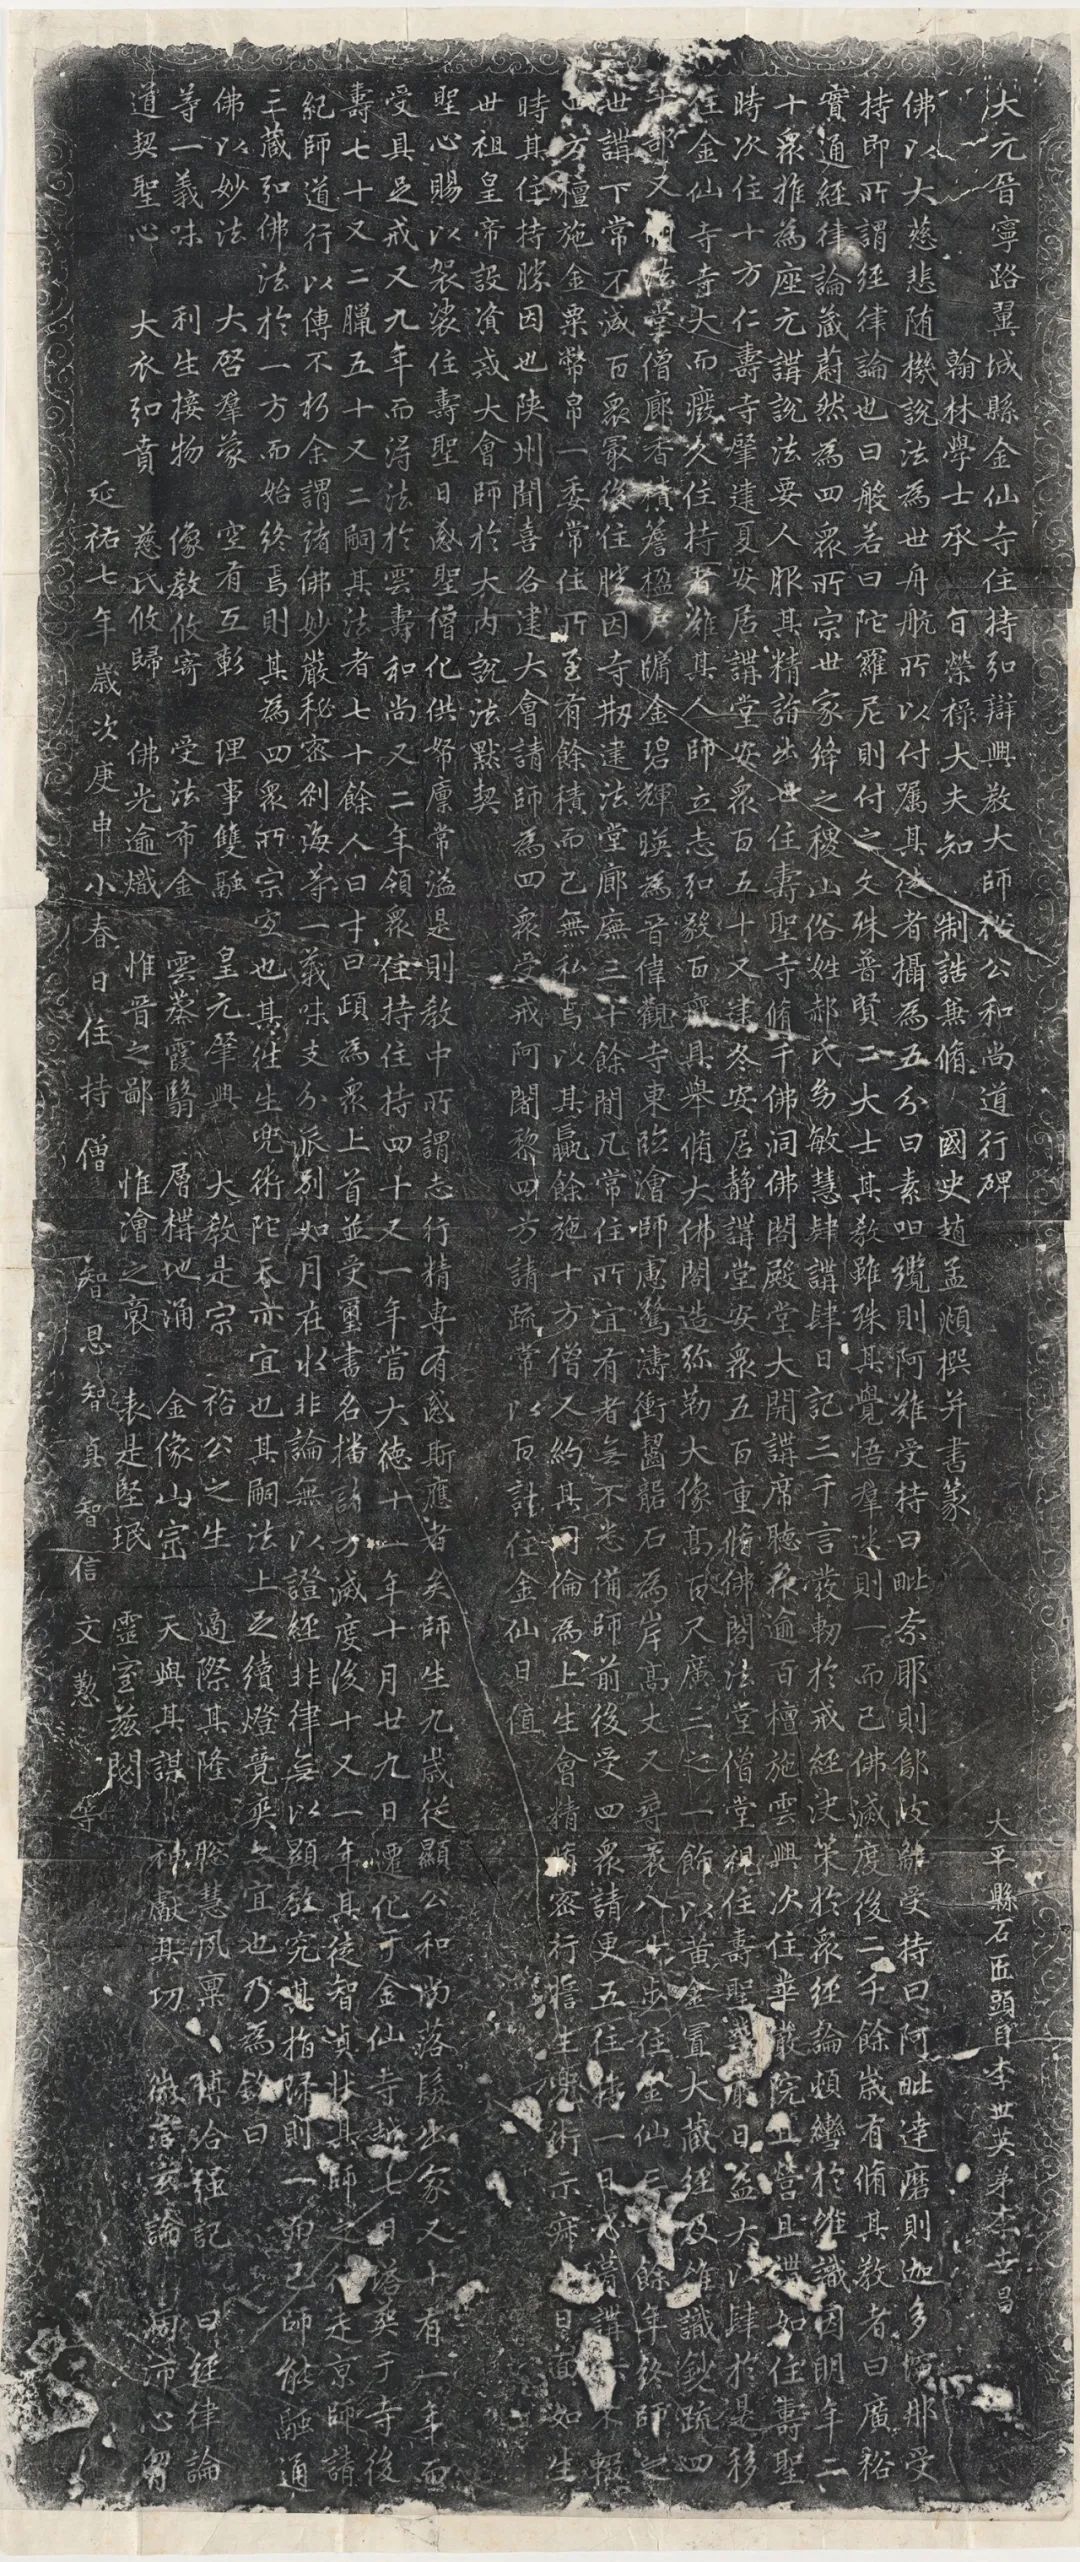 大元晉寧路翼城縣金仙寺住持弘辯興教大師裕公和尚道行碑 大平縣石匠頭目李世英弟李世昌
翰林學士承 旨榮祿大夫知 制誥兼脩 國史趙孟頫撰并書篆
佛以大慈悲随機說法為世舟航所以付嘱其徒者攝為五分曰素呾纜則阿難受持曰毗奈耶則鄔波離受持曰阿毗達磨則迦多衍那受
持即所謂經律論也曰般若曰陀羅尼則付之文殊普賢二大士其教雖殊其覺悟羣迷則一而已佛滅度後二千餘歲有脩其教者曰廣裕
實通經律論藏蔚然為四眾所宗世家絳之稷山俗姓郝氏㓜敏慧肆講肆日記三千言發軔於戒經決策於眾經論頓轡於維識因明年二
十眾推為座元講說法要人服其精詣出世住壽聖寺脩千佛洞佛閣殿堂大開講席聽希逾百檀施雲興次住華嚴院且營且講如住壽聖
時次住十方仁壽寺肇建夏安居講堂安眾百五十又建冬安居静講堂安眾五百重脩佛閣法堂僧堂視住壽聖華嚴日益大以肆於是移
住金仙寺寺大而廢久住持者難其人師立志弘發百廢具舉脩大佛閣造弥勒大像高百尺廣三之一飾以黃金置大藏經及維識鈔疏四
十部又 法堂僧廊香積簷楹戶牖金碧輝暎為晉偉觀寺東臨澮師慮驚濤衝齧甃石為岸高丈又尋袤八十步住金仙三十餘年終師之
世講下常不減百眾最後住勝因寺刱建法堂廊廡三十餘間凡常住所宜有者無不悉備師前後受四眾請更五住持一日必 講 不輟
四方檀施金粟幣帛一委常住所至有餘積而己無私焉以其贏餘施十方僧又約其同倫為上生會精脩密行膽生兜術示寂日面如生
時其住持勝因也陝州聞喜各建大會請師為四眾受戒阿闍黎四方請疏常以百計住金仙日值
世祖皇帝設資戒大會師於大內說法默契
聖心賜以袈裟住壽聖日感聖僧化供帑廩常溢是則教中所謂志行精專有感斯應者矣師生九歲從顯公和尚落髮出家又十有一年而
受具足戒又九年而得法於雲壽和尚又二年領眾住持住持四十又一年當大德十一年十月廿九日遷化于金仙寺越七日塔葬于寺後
壽七十又二臘五十又二嗣其法者七十餘人曰才曰頤為眾上首並受璽書名播諸方滅度後十又一年其徒智湞狀其師之行走京師請
紀師道行以傳不朽余謂諸佛妙嚴秘密刹海等一義味支分派別如月在水非論無以證經非律無以顯教究其指歸則一而已師能融通
三藏弘佛法於一方而始終焉則其為四眾所宗宜也其往生兜術陀天亦宜也其嗣法上足續燈竟爽又宜也乃為銘曰
佛以妙法 大啓羣蒙 空有互彰 理事雙融 皇元肇興 大教是宗 裕公之生 適際其隆 聡慧夙稟 博洽強記 曰經律論
等一義味 利生接物 像教攸寄 受法布金 雲蒸霞翳 層構地涌 金像山崇 天與其謀 神獻其功 微言玄論 沛心胷
道契聖心 大衣弘賁 慈氏攸歸 佛光逾熾 惟晉之鄙 惟澮之裔 表是堅珉 靈室兹閟
延祐七年歲次庚申小春日住持僧 智恩智真智信文懃等